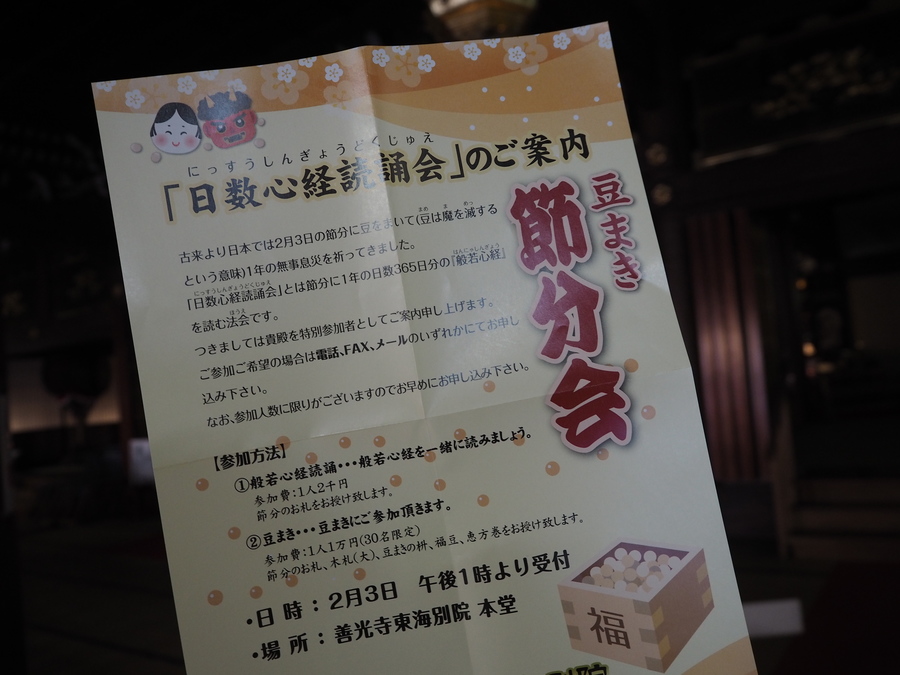 にっすうしんぎょうどくじゅえ
「日数心経読誦会」のご案内
豆まき
節分会
古来より日本では2月3日の節分に豆をまいて(豆は魔を滅する
まめ ま めっ
という意味)1年の無事息災を祈ってきました。
にっすうしんぎょうどくじゅえ
はんにゃしんぎょう
「日数心経読誦会」とは節分に1年の日数365日分の『般若心経』
ほうえ
を読む法会です。
つきましては貴殿を特別参加者としてご案内申し上げます。
ご参加ご希望の場合は電話、FAX、メールのいずれかにてお申し
込み下さい。
なお、参加人数に限りがございますのでお早めにお申し込み下さい。
【参加方法】
①般若心経読誦・・・般若心経を一緒に読みましょう。
参加費:1人2千円
節分のお札をお授け致します。
②豆まき・・・豆まきにご参加頂きます。
参加費:1人1万円(30名限定)
節分のお札、木札(大)、豆まきの枡、福豆、恵方巻をお授け致します。
・日 時 : 2月3日 午後1時より受付
・場 所 : 善光寺東海別院 本堂
福